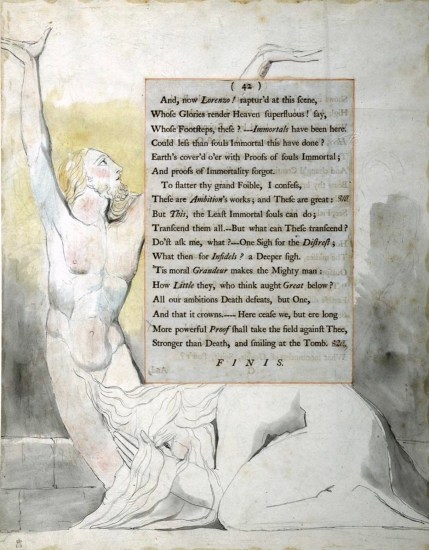 ( 42 )
And, now Lorenzo! raptur'd at this scene,
Whose Glories render Heaven superfluous! say,
Whose Footsteps, these?—Immortals have been here.
Could less than souls Immortal this have done?
Earth's cover'd o'er with Proofs of souls Immortal;
And proofs of Immortality forgot.
To flatter thy grand Foible, I confess,
These are Ambition's works; and These are great:
But This, the Least Immortal souls can do;
Transcend them all.—But what can These transcend?
Do'st ask me, what?—One Sigh for the Distrest;
What then for Infidels? a Deeper sigh.
'Tis moral Grandeur makes the Mighty man:
How Little they, who think aught Great below?
All our ambitions Death defeats, but One,
And that it crowns.—— Here cease we, but ere long
More powerful Proof shall take the field against Thee,
Stronger than Death, and smiling at the Tomb.
FINIS.